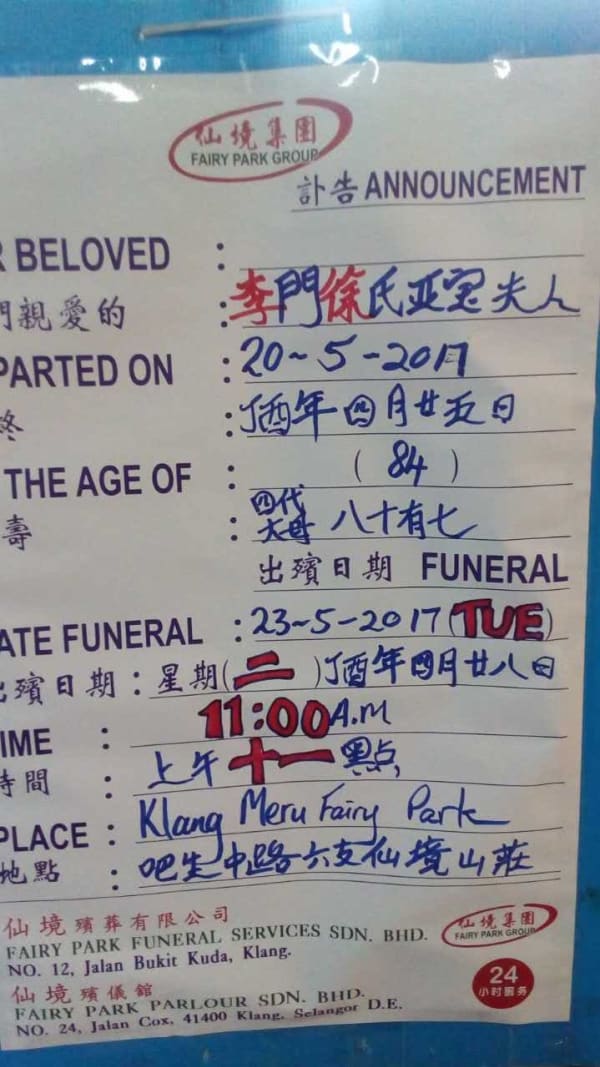 仙境集團
FAIRY PARK GROUP
訃告 ANNOUNCEMENT
R BELOVED :
門親愛的 : 李門徐氏亚宽夫人
PARTED ON : 20-5-2017
終 : 丁酉年四月廿五日
THE AGE OF : (84)
壽 : 四代大母 八十有七
出殯日期 FUNERAL
ATE FUNERAL : 23-5-2017 (TUE)
出殯日期 : 星期(二) 丁酉年四月廿八日
TIME : 11:00 A.M
時間 : 上午十一點
PLACE : Klang Meru Fairy Park
地點 : 吧生中路六支仙境山莊
仙境殯葬有限公司
FAIRY PARK FUNERAL SERVICES SDN. BHD.
NO. 12, Jalan Bukit Kuda, Klang.
仙境殯儀館
FAIRY PARK PARLOUR SDN. BHD.
NO. 24, Jalan Cox, 41400 Klang, Selangor D.E.
仙境集團
FAIRY PARK GROUP
24
小时服务